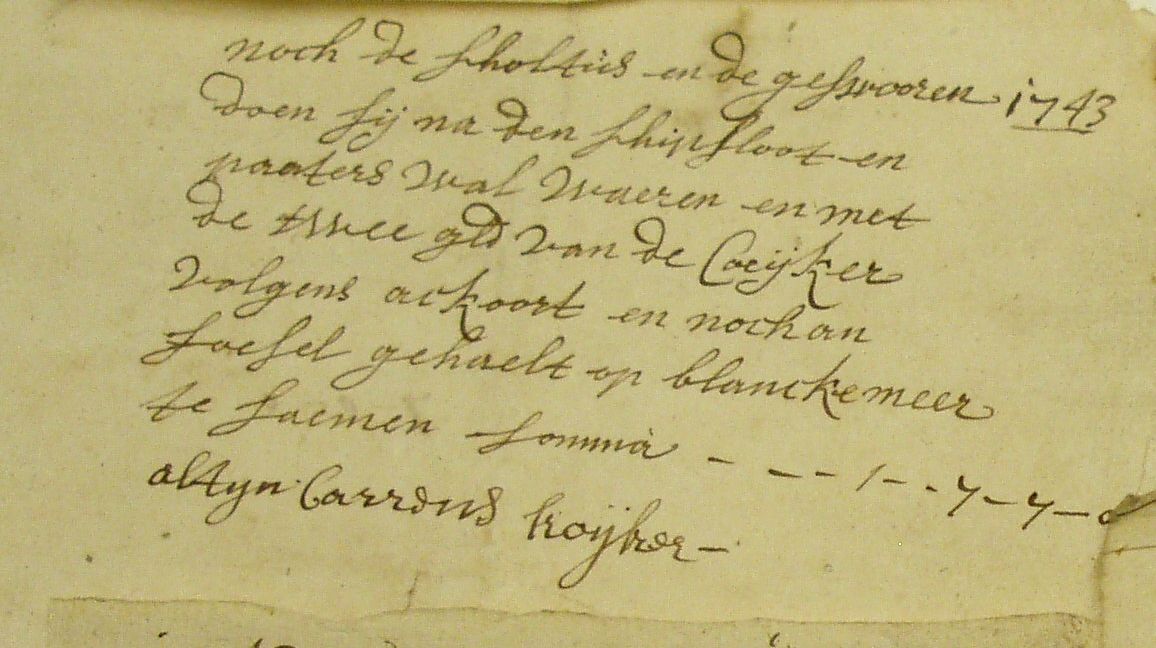 noch de scholtus en de geswooren 1743
doen sij na den schipsloot en
paaters wal waeren en met
de twee gld van de Coeijker
volgens ackoort en noch an
foesel gehaelt op blanckemeer
te saemen somma - - - 1 - - 7 - 7 - 0
altyn Carrens koijker -